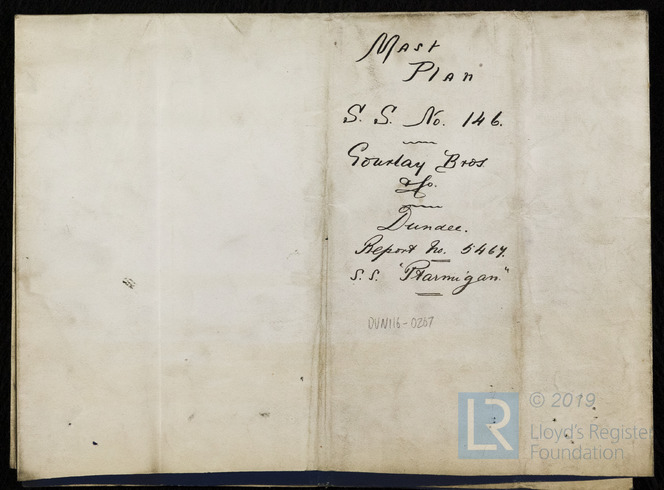 Mast
Plan
S. S. No. 146.
Gourlay Bros.
& Co.
Dundee.
Report No. 5467.
S.S. "Ptarmigan"
DUN116-0267
© 2019
LR
Lloyd's Register
Foundation